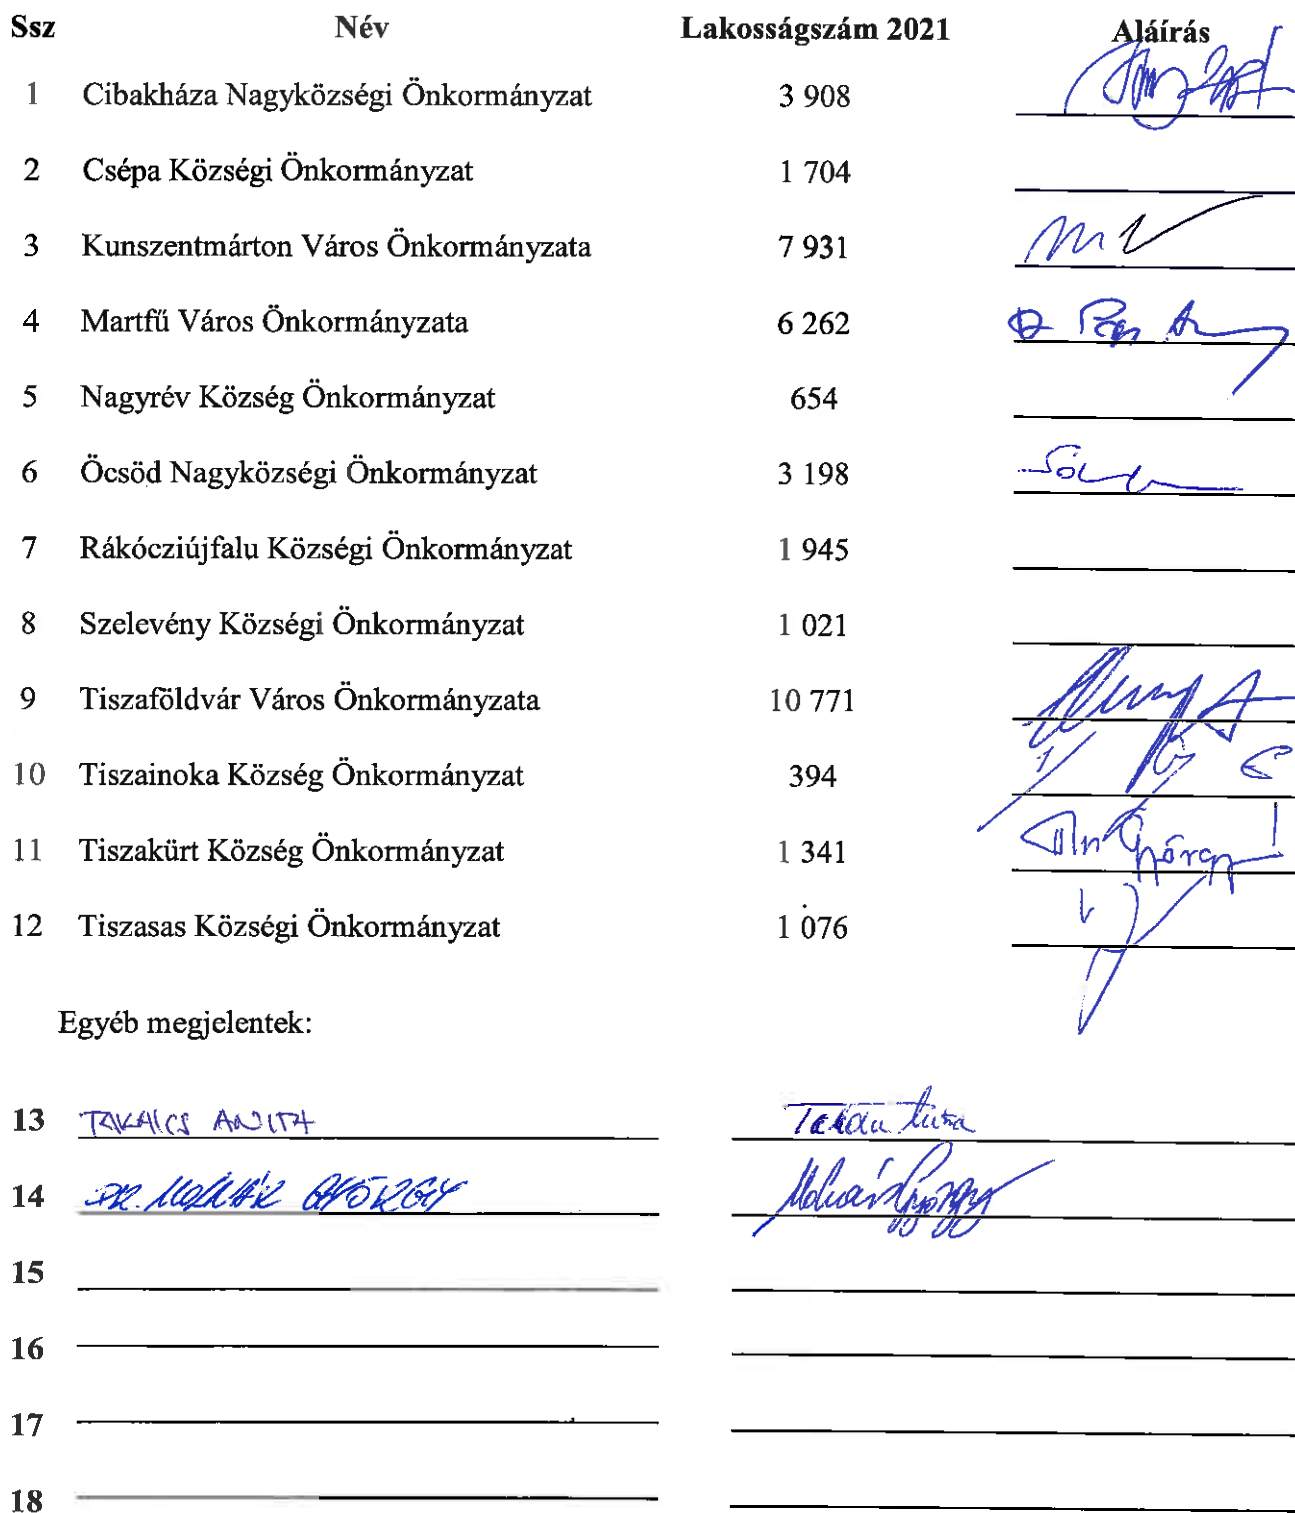 Ssz Név Lakosságszám 2021 Aláírás
1 Cibakháza Nagyközségi Önkormányzat 3 908
2 Csépa Községi Önkormányzat 1 704
3 Kunszentmárton Város Önkormányzata 7 931
4 Martfű Város Önkormányzata 6 262
5 Nagyrév Község Önkormányzat 654
6 Öcsöd Nagyközségi Önkormányzat 3 198
7 Rákócziújfalu Községi Önkormányzat 1 945
8 Szelevény Községi Önkormányzat 1 021
9 Tiszaföldvár Város Önkormányzata 10 771
10 Tiszainoka Község Önkormányzat 394
11 Tiszakürt Község Önkormányzat 1 341 György
12 Tiszasas Községi Önkormányzat 1 076
Egyéb megjelentek:
13 TAKÁCS ANITA
14 DR. MOLNÁR GYÖRGY Molnár György
15
16
17
18